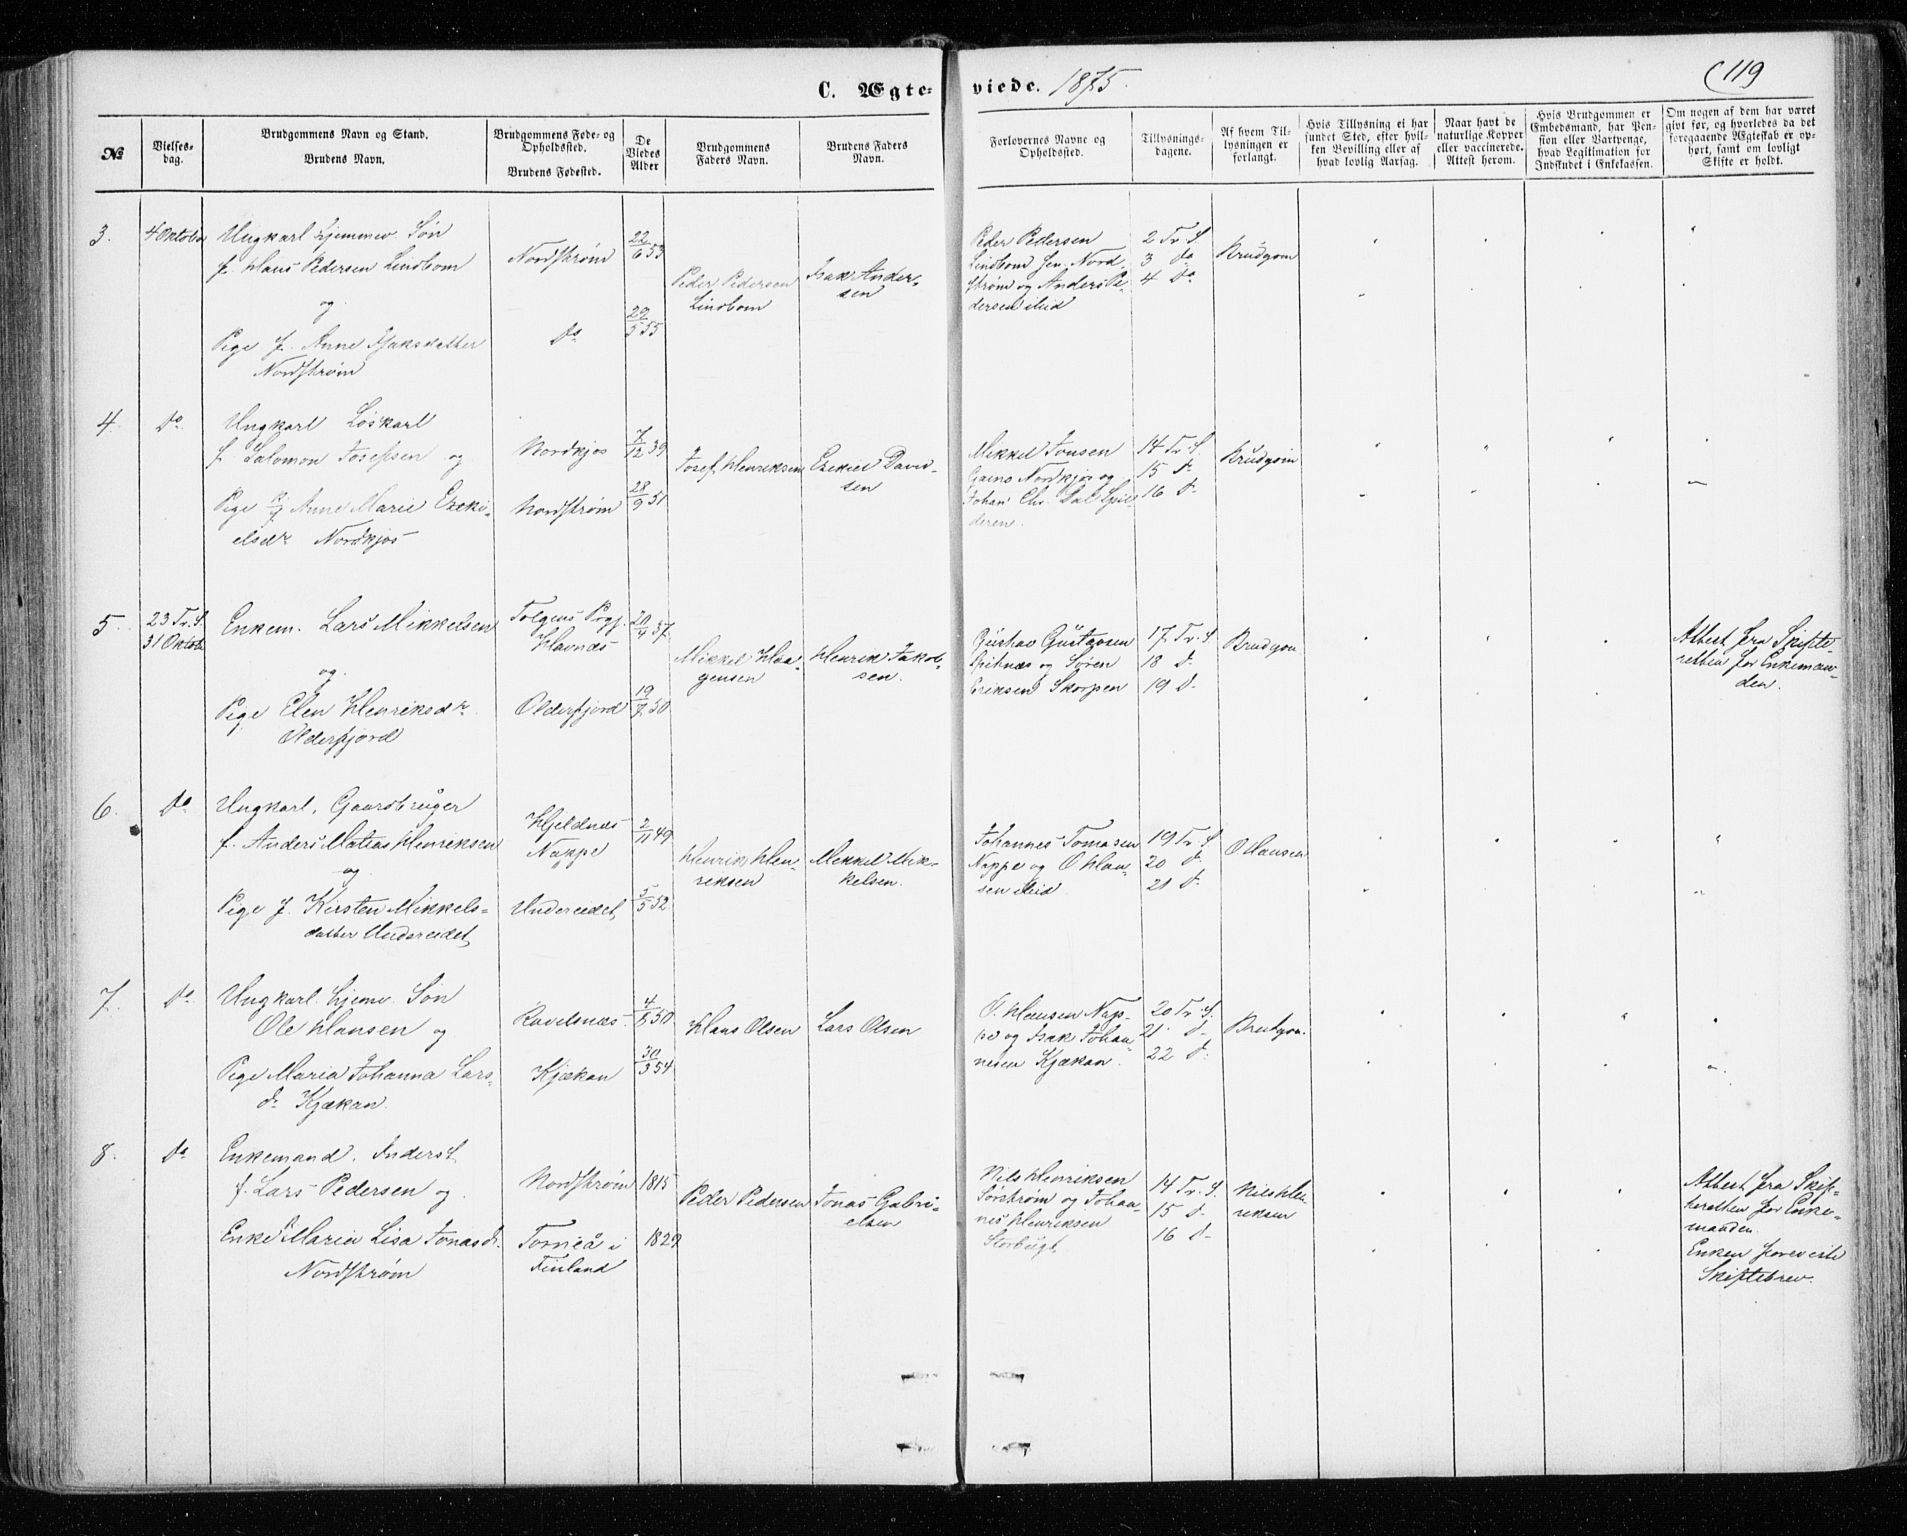 C. Ægte-
viede. 1875.
(119
No
Vielses-
dag.
Brudgommens Navn og Stand.
Brudens Navn.
Brudgommens Føde- og
Opholdssted.
Brudens Fødested.
De
Viedes
Alder
Brudgommens
Faders Navn.
Brudens Faders
Navn.
Forlovernes Navne og
Opholdssted.
Tillysnings-
dagene.
Af hvem Til-
lysningen er
forlangt.
Hvis Tillysning ei har
fundet Sted, efter hvil-
ken Bevilling eller af
hvad lovlig Aarsag.
Naar havt de
naturlige Kopper
eller vaccinerede.
Attest herom.
Hvis Brudgommen er
Embedsmand, har Pen-
sion eller Vartpenge,
hvad Legitimation for
Indskudet i Enkekassen.
Om nogen af dem har været
givt før, og hvorledes da det
foregaaende Ægteskab er op-
hørt, samt om lovligt
Skifte er holdt.
3.
4 Oktober
Ungkarl hjemmev. Søn
f. Hans Pedersen Lindbom
og
Pige f. Anne Isaksdatter
Nordstrøm
Nordstrøm
Do
22/6 53
29/5 55
Peder Pedersen
Lindbom
Isak Ander-
sen
Peder Pedersen
Lindbom Sen. Nord-
strøm og Anders Pe-
dersen Eid
2 Tr. S.
3 Do
4 Do
Brudgom
4.
Do
Ungkarl Løskarl
f. Salomon Josefsen og
Pige f Anne Marie Ezeki-
elsdr Nordkjos
Nordkjos
Nordstrøm
7/12 39
28/9 51
Josef Henriksen
Ezekiel David-
sen
Mikkel Jonsen
Gaino Nordkjos og
Johan Chr. Dal Spil-
deren.
14 Tr. S.
15 D-
16 D-
Brudgom
5.
23 Tr. S.
31 Oktober
Enkem. Lars Mikkelsen
og
Pige Elen Henriksdr.
Olderfjord
Tolgens Prgj.
Havnæs
Olderfjord
20/4 37
19/7 50
Mikkel Haa-
gensen
Henrik Jakob-
sen.
Gustav Gustavsen
Spitnæs og Søren
Eriksen Skorpen
17 Tr. S
18 D-
19 D-
Brudgom
Attest fra Skifte-
retten for Enkeman-
den.
6.
Do
Ungkarl. Gaardbruger
f. Anders Matias Henriksen
og
Pige f. Kirsten Mikkels-
datter Undereidet
Hjeldnæs
Nappe
Undereidet
2/11 49
5/5 52
Henrik Hen-
riksen
Mikkel Mik-
kelsen.
Johannes Tomasen
Nappe og O Han-
sen Eid
19 Tr. S
20 D-
21 D-
O Hansen
7.
Do
Ungkarl. hjemv. Søn
Ole Hansen og
Pige Maria Johanna Lars-
dr Kjækan.
Ravelsnæs.
Kjækan
4/8 50
30/3 54
Hans Olsen
Lars Olsen
O. Hansen Nap-
pe og Isak Johan-
nesen Kjækan.
20 Tr. S.
21. D-
22 D-
Brudgom.
8.
Do
Enkemand. Inderst
f. Lars Pedersen og
Enke Maria Lisa Jonasdr.
Nordstrøm
Nordstrøm
Torneå i
Finland
1815
1829
Peder Pedersen
Jonas Gabri-
elsen
Nils Henriksen
Sørstrøm og Johan-
nes Henriksen
Storbugt
14 Tr. S.
15 D-
16 D-
Nils Hen-
riksen
Attest fra Skif-
teretten for Enke-
manden.
Enken foreviste
Skiftebrev.